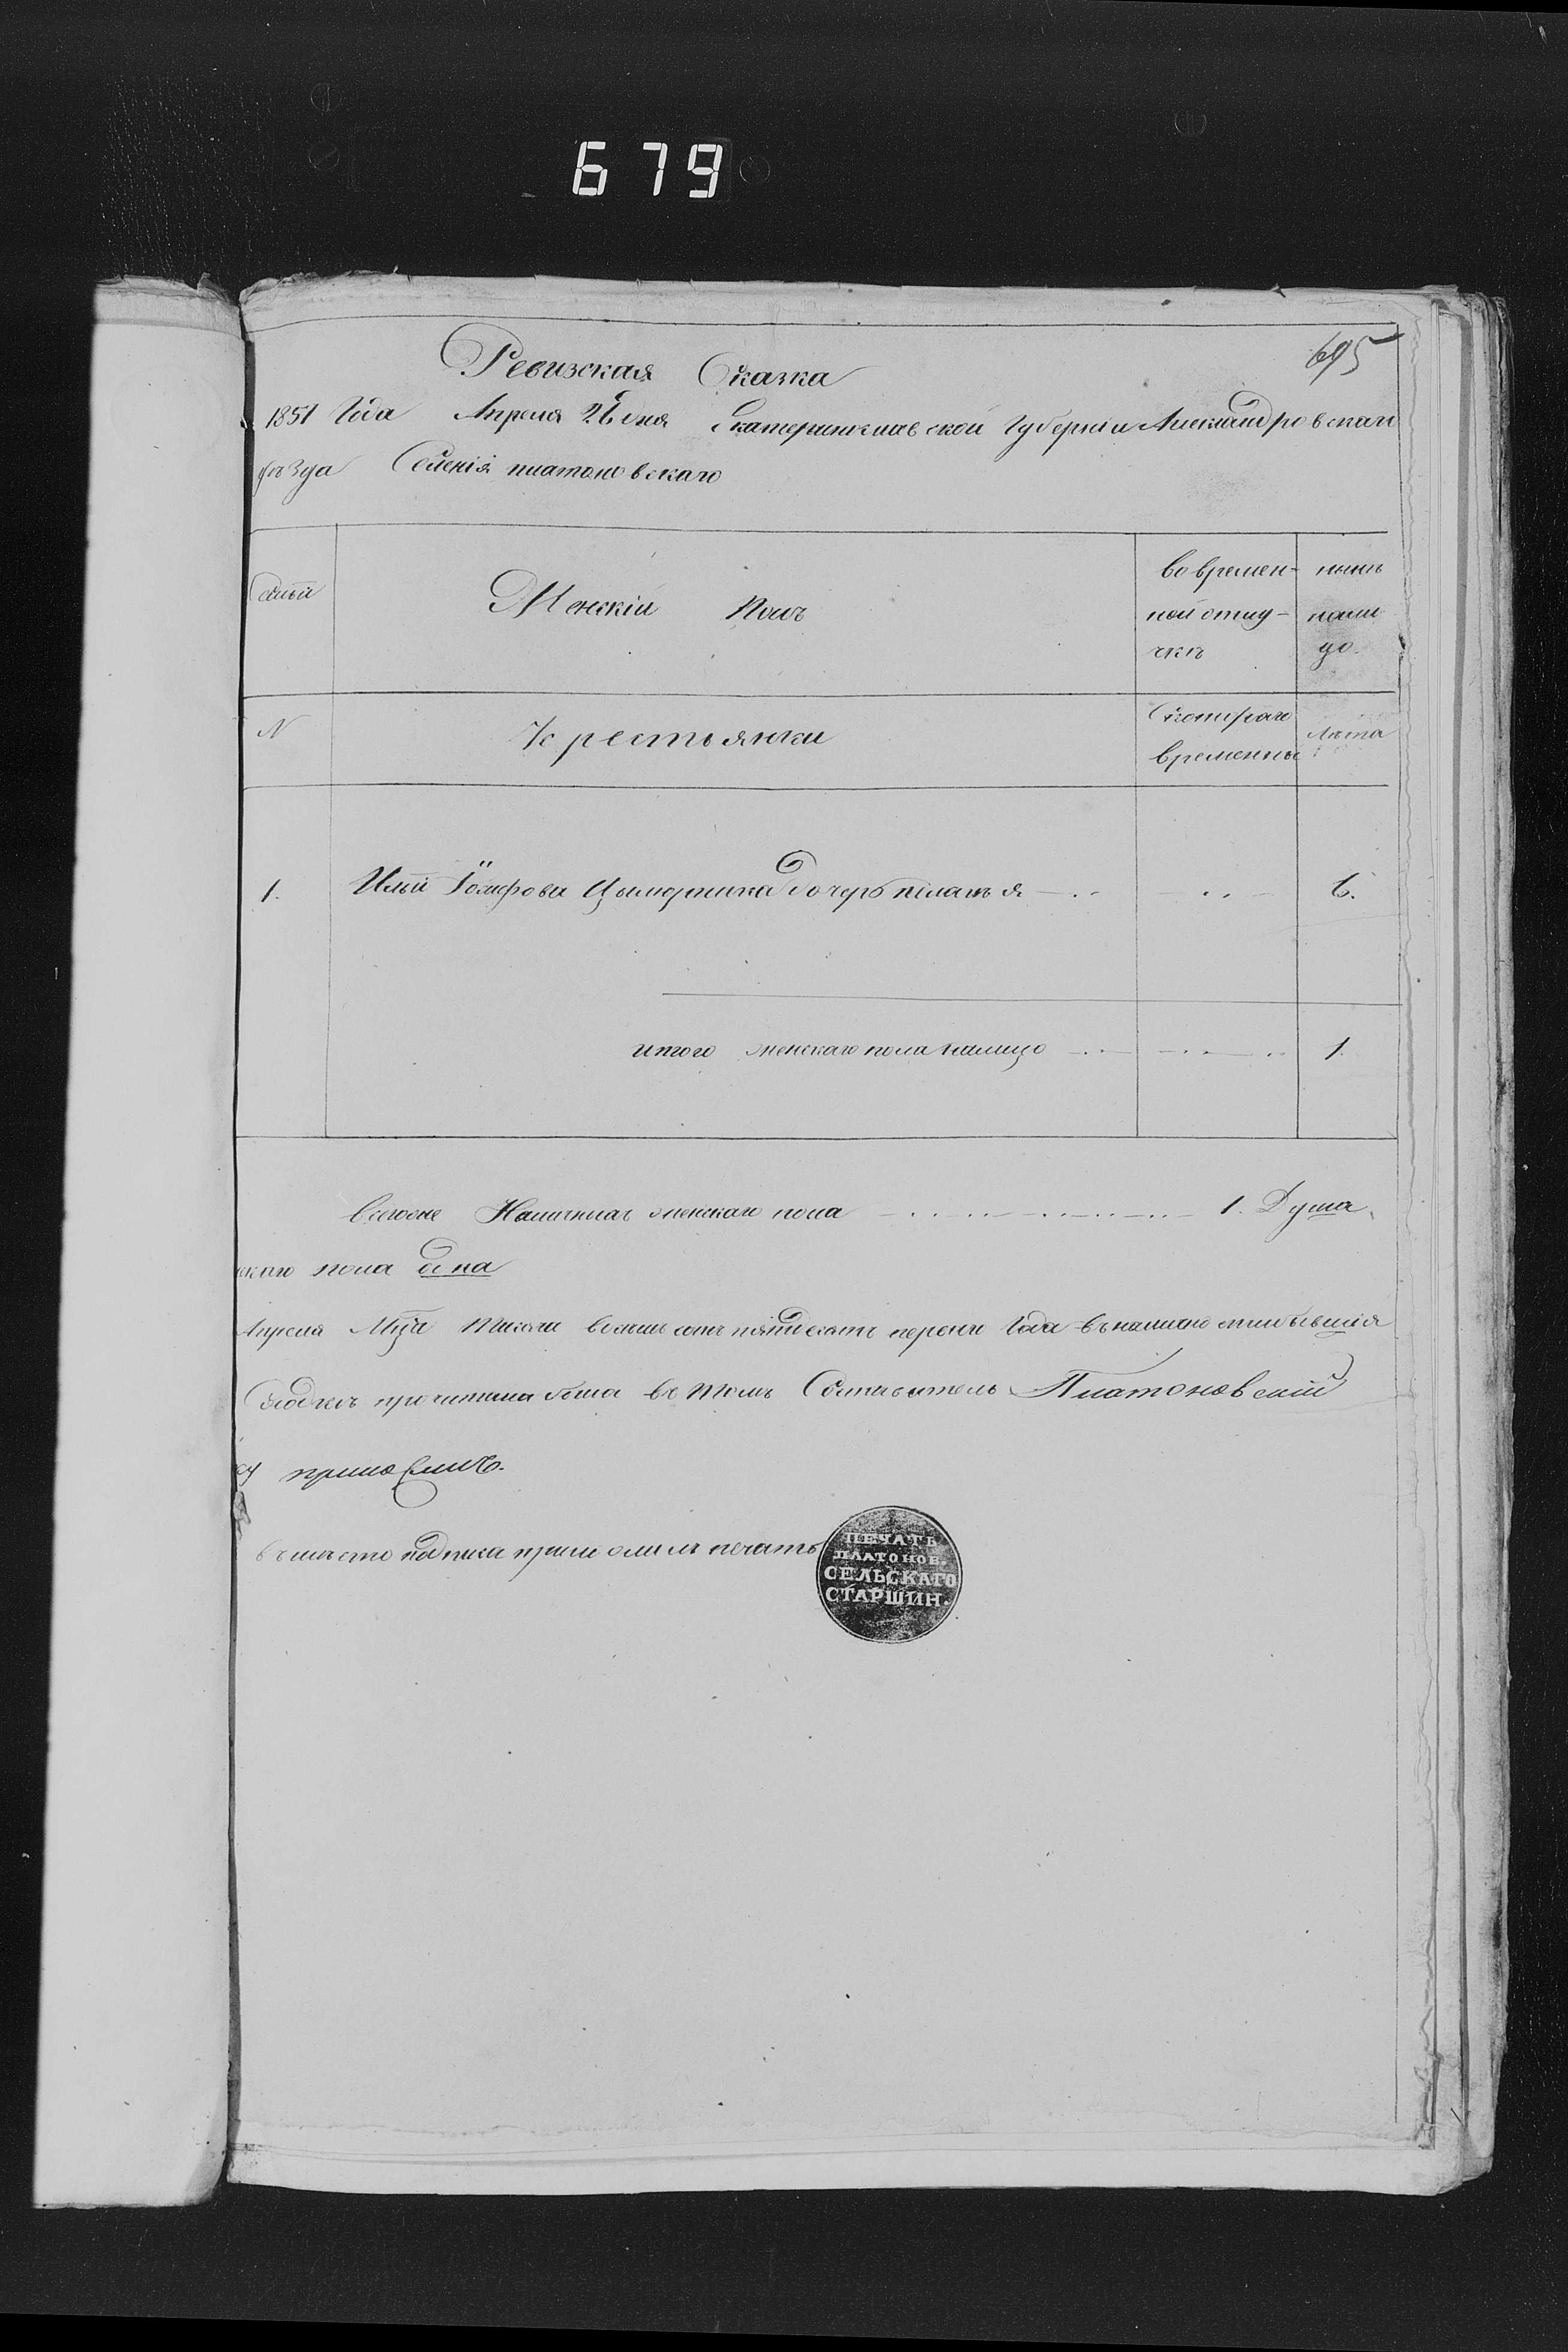 679
695
Ревизская Сказка
1851 Года Апреля 26 дня Екатеринославской Губернiи Александровскаго
уѣзда Селенiя платоновскаго
Семьи
Женскiй Полъ
во времен-
ной отлу-
чкѣ
нынѣ
нали
цо
N
Крестьянки
Скотораго
времени
Лѣта
1. Ильи дочерь пелагья 6.
итого женскаго пола налицо 1.
всего наличнаго женскаго пола 1. Душа
скаго пола одна
Апреля Мца тисяча восемь сотъ пятдесятъ перваго Года въ
прочитана была въ томъ Составитель Платоновскiй
приложилъ.
въ мѣсто подписа приложилъ печать
ПЕЧАТЬ
ПЛАТОНОВ.
СЕЛЬСКАГО
СТАРШИН.